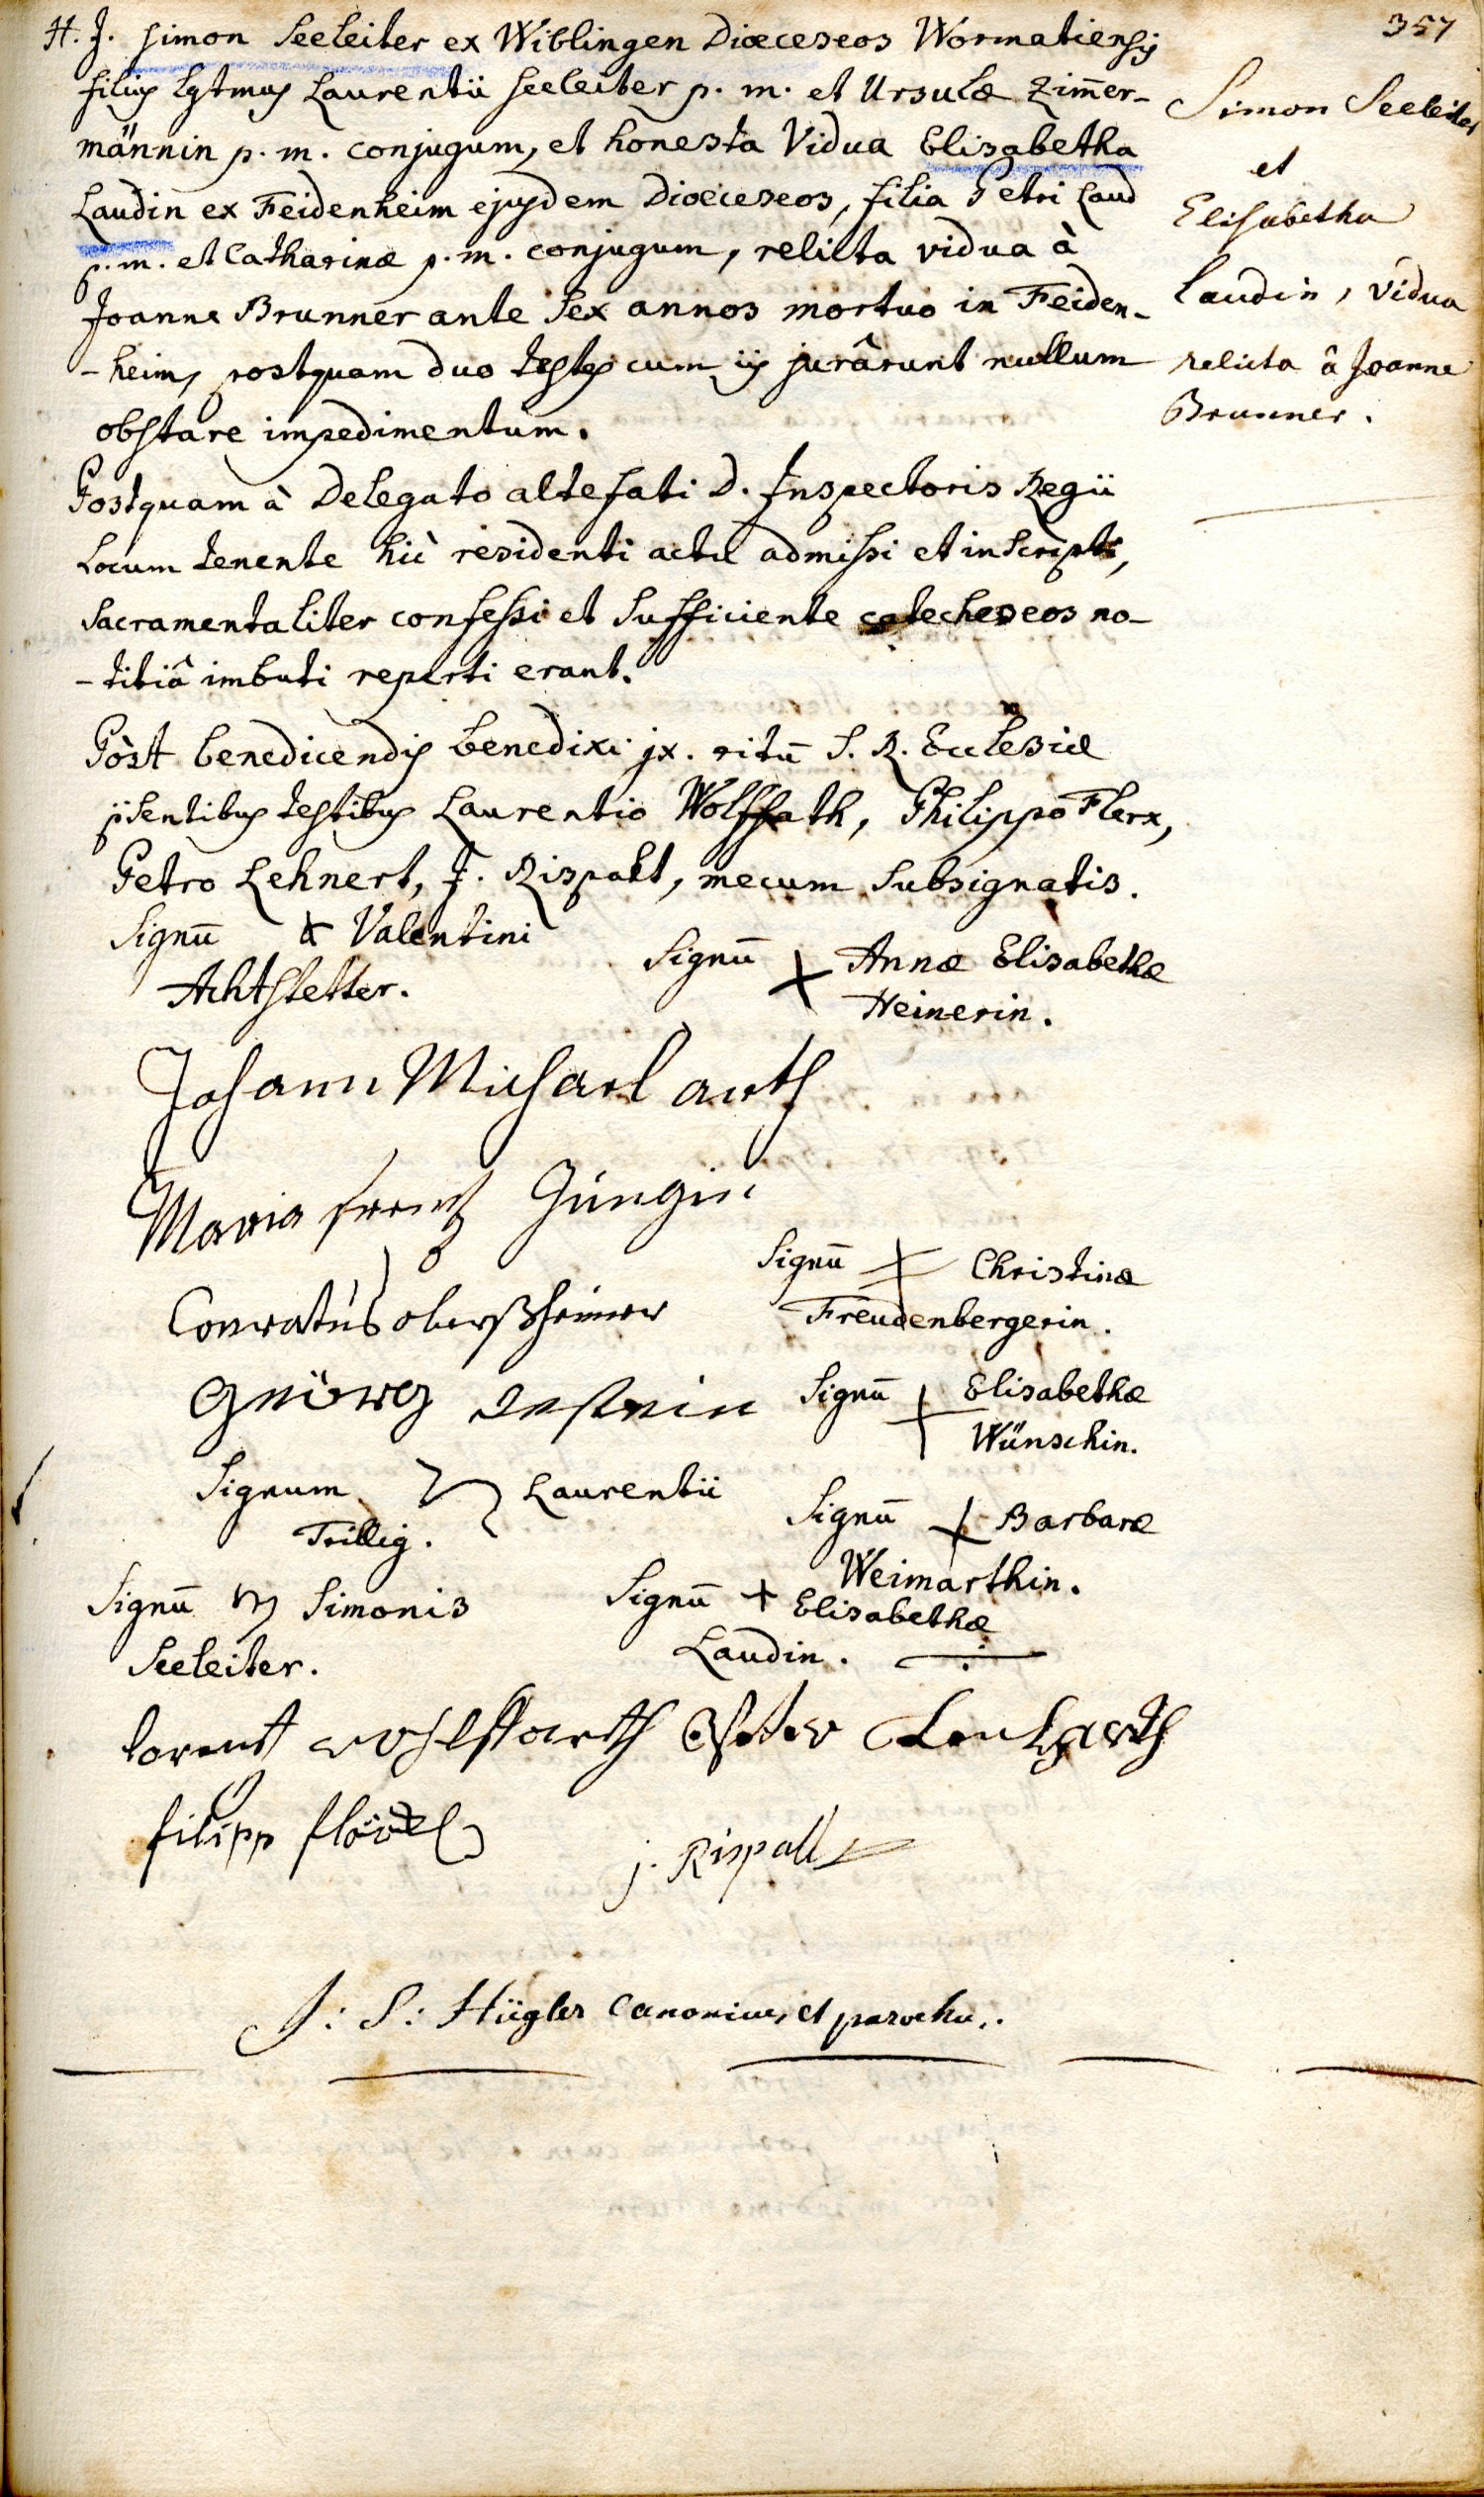 357
H. J. Simon Seeleiter ex Wiblingen Dioeceseos Wormatiensis
filius lgtmus Laurentii Seeleiter p. m. et Ursulæ Zim̄er-
männin p. m. conjugum, et honesta Vidua Elisabetha
Laudin ex Feidenheim ejusdem Dioeceseos, filia Petri Laud
p. m. et Catharinæ p. m. conjugum, relicta vidua à
Joanne Brunner ante sex annos mortuo in Feiden-
-heim, postquam duo testes cum iis jurârunt nullum
obstare impedimentum.
Postquam à Delegato altefati D. Inspectoris Regii
Locum tenente hic residenti actu admissi et inscripti,
Sacramentaliter confessi et sufficiente catecheseos no-
-titiâ imbuti reperti erant.
Pòst benedicendis benedixi jx. ritū S. R. Ecclesiæ
p̄sentibus testibus Laurentio Wolffath, Philippo Flerx,
Petro Lehnert, J. Rispalt, mecum subsignatis.
Simon Seeleiter
et
Elisabetha
Laudin, Vidua
relicta â Joanne
Brunner.
Signū + Valentini
Achtstetter.
Signū + Annæ Elisabethæ
Heinerin.
Johann Michael auth
Maria Güngin
Conratus
Signū + Christinæ
Freudenbergerin.
Signū + Elisabethæ
Wünschin.
Signum Laurentii
Trillig.
Signū + Barbaræ
Weimarthin.
Signū Simonis
Seeleiter.
Signū + Elisabethæ
Laudin.
lorentz wohlffarth Peter Lenharth
filipp
j. Rispall
J: S: Hügler Canonicus et parochus.